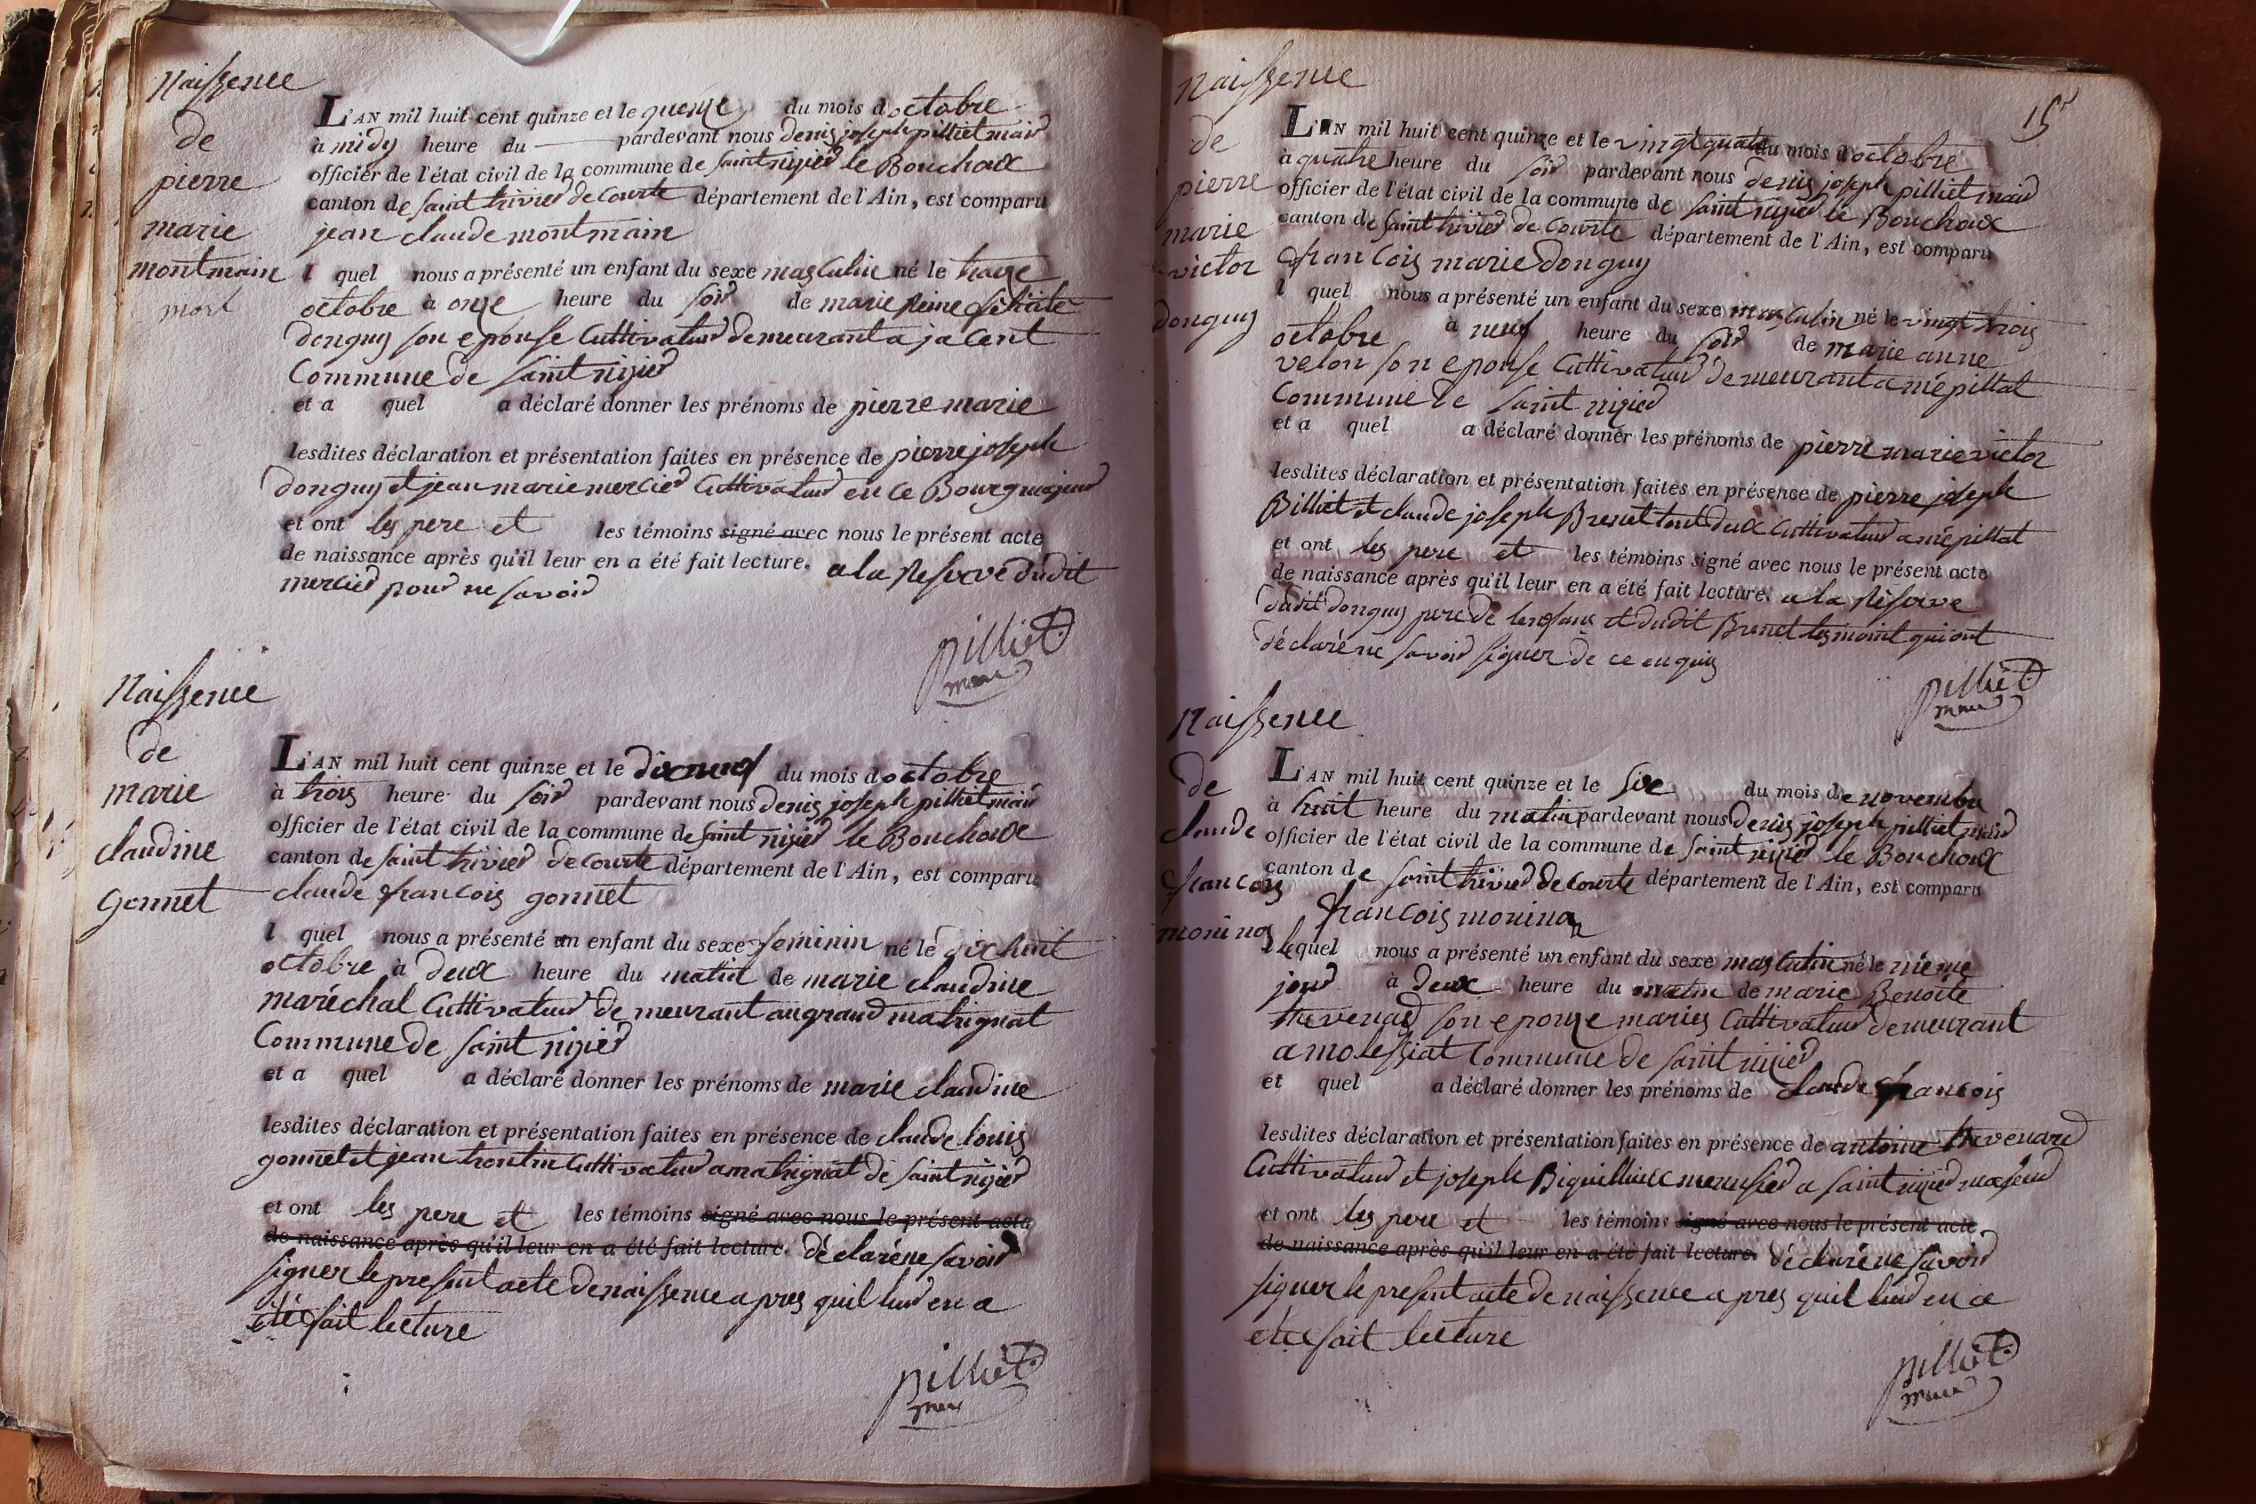 Naissence
de
pierre
marie
montmain
mort
L'AN mil huit cent quinze et le quenze du mois doctobre
à midy heure du pardevant nous denis joseph pilliet maire
officier de l'état civil de la commune de saint nizier le Bouchoux
canton de saint trivier de Courte département de l'Ain, est comparu
jean claude montmain
l quel nous a présenté un enfant du sexe masculin né le traize
octobre à onze heure du soir de marie Reine felicite
donguy son epouse Cultivateur demeurant a jacent
Commune de saint nizier
et a quel a déclaré donner les prénoms de pierre marie
lesdites déclaration et présentation faites en présence de pierre joseph
donguy et jean marie mercier Cultivateur en ce Bourg majeur
et ont les pere et les témoins signé avec nous le présent acte
de naissance après qu'il leur en a été fait lecture. a la Reserve dudit
mercier pour ne savoir
pilliet
maire
Naissence
de
marie
claudine
gonnet
L'AN mil huit cent quinze et le dixneuf du mois doctobre
à trois heure du soir pardevant nous denis joseph pilliet maire
officier de l'état civil de la commune de saint nizier le Bouchoux
canton de saint trivier de Courte département de l'Ain, est comparu
claude francois gonnet
l quel nous a présenté un enfant du sexe feminin né le dix huit
octobre à deux heure du matin de marie claudine
maréchal Cultivateur demeurant au grand matrignat
Commune de saint nizier
et a quel a déclaré donner les prénoms de marie claudine
lesdites déclaration et présentation faites en présence de claude louis
gonnet et jean Cultivateur a matrignat de saint nizier
et ont les pere et les témoins signé avec nous le présent acte
de naissance après qu'il leur en a été fait lecture. déclaré ne savoir
signer le present acte de naissence apres quil leur en a
été fait lecture
pilliet
maire
15
Naissence
de
pierre
marie
victor
donguy
L'AN mil huit cent quinze et le vingtquatre du mois doctobre
à quatre heure du soir pardevant nous denis joseph pilliet maire
officier de l'état civil de la commune de saint nizier le Bouchoux
canton de saint trivier de Courte département de l'Ain, est comparu
francois marie donguy
l quel nous a présenté un enfant du sexe masculin né le vingt trois
octobre à neuf heure du soir de marie anne
velon son epouse Cultivateur demeurant a mépillat
Commune de saint nizier
et a quel a déclaré donner les prénoms de pierre marie victor
lesdites déclaration et présentation faites en présence de pierre joseph
Billiet et claude joseph Brenet tout deux Cultivateur a mépillat
et ont les pere et les témoins signé avec nous le présent acte
de naissance après qu'il leur en a été fait lecture. a la Réserve
dudit donguy pere de lenfant et dudit Brenet qui ont
déclaré ne savoir signer de ce enquis
pilliet
maire
Naissence
de
claude
francois
moninot
L'AN mil huit cent quinze et le six du mois de novembre
à huit heure du matin pardevant nous denis joseph pilliet maire
officier de l'état civil de la commune de saint nizier le Bouchoux
canton de saint trivier de Courte département de l'Ain, est comparu
francois
lequel nous a présenté un enfant du sexe masculin né le même
jour à deux heure du matin de marie Benoite
thevenard son epouze mariés Cultivateur demeurant
a molessiat Commune de saint nizier
et quel a déclaré donner les prénoms de claude francois
lesdites déclaration et présentation faites en présence de antoine thevenard
Cultivateur et joseph menusier a saint nizier majeur
et ont les pere et les témoins signé avec nous le présent acte
de naissance après qu'il leur en a été fait lecture. déclaré ne savoir
signer le present acte de naissence apres quil leur en a
été fait lecture
pilliet
maire